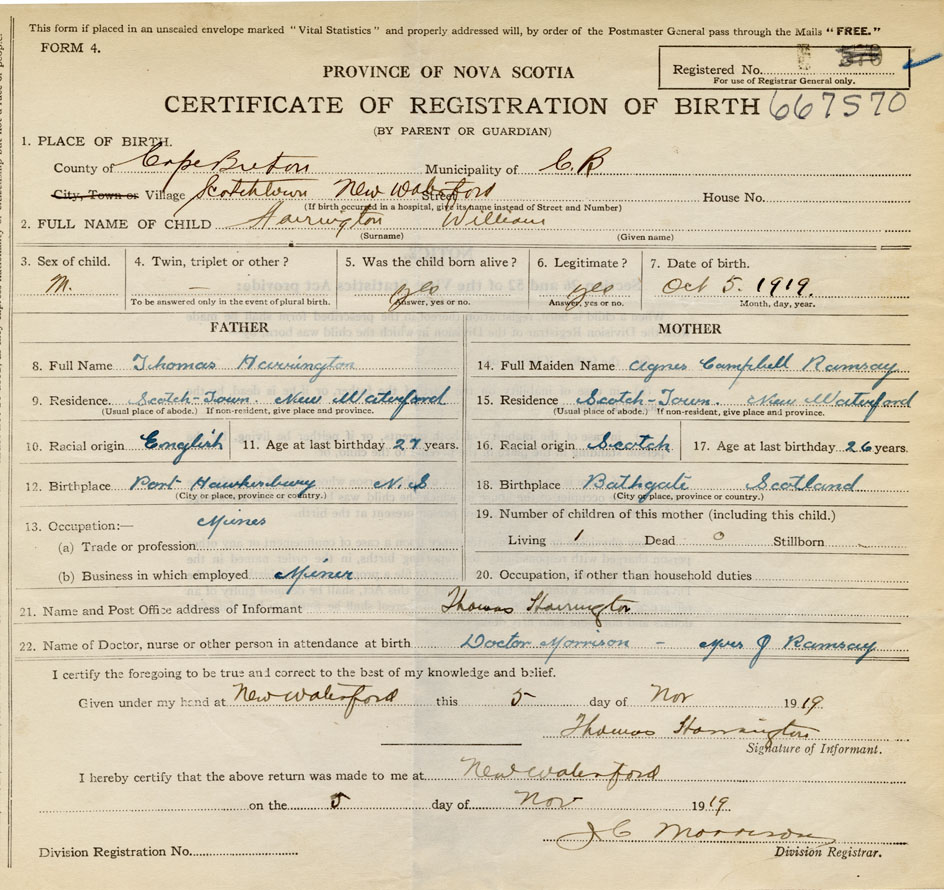 This form if placed in an unsealed envelope marked "Vital Statistics" and properly addressed will, by order of the Postmaster General pass through the Mails "FREE."
FORM 4.
PROVINCE OF NOVA SCOTIA
Registered No.
For use of Registrar General only.
CERTIFICATE OF REGISTRATION OF BIRTH 667570
(BY PARENT OR GUARDIAN)
1. PLACE OF BIRTH.
County of Cape Breton Municipality of C. B
City, Town or Village Scotchtown New Waterford Street House No.
(If birth occurred in a hospital, give its name instead of Street and Number)
2. FULL NAME OF CHILD Harrington William
(Surname) (Given name)
3. Sex of child. 4. Twin, triplet or other? 5. Was the child born alive? 6. Legitimate? 7. Date of birth.
M. — yes yes Oct 5. 1919.
To be answered only in the event of plural birth. Answer, yes or no. Answer, yes or no. Month, day, year.
FATHER MOTHER
8. Full Name Thomas Harrington 14. Full Maiden Name Agnes Campbell Ramsay
9. Residence. Scotch-Town. New Waterford 15. Residence Scotch-Town. New Waterford
(Usual place of abode.) If non-resident, give place and province. (Usual place of abode.) If non-resident, give place and province.
10. Racial origin English 11. Age at last birthday 27 years. 16. Racial origin Scotch 17. Age at last birthday 26 years.
12. Birthplace Port Hawkesbury N. S 18. Birthplace Bathgate Scotland
(City or place, province or country.) (City or place, province or country.)
13. Occupation:— Mines 19. Number of children of this mother (including this child.)
(a) Trade or profession Living 1 Dead 0 Stillborn
(b) Business in which employed Miner 20. Occupation, if other than household duties
21. Name and Post Office address of Informant Thomas Harrington
22. Name of Doctor, nurse or other person in attendance at birth Doctor Morrison — Mrs J Ramsay
I certify the foregoing to be true and correct to the best of my knowledge and belief.
Given under my hand at New Waterford this 5 day of Nov 1919.
Thomas Harrington
Signature of Informant.
I hereby certify that the above return was made to me at New Waterford
on the 5 day of Nov 1919.
J C Morrison
Division Registrar.
Division Registration No.